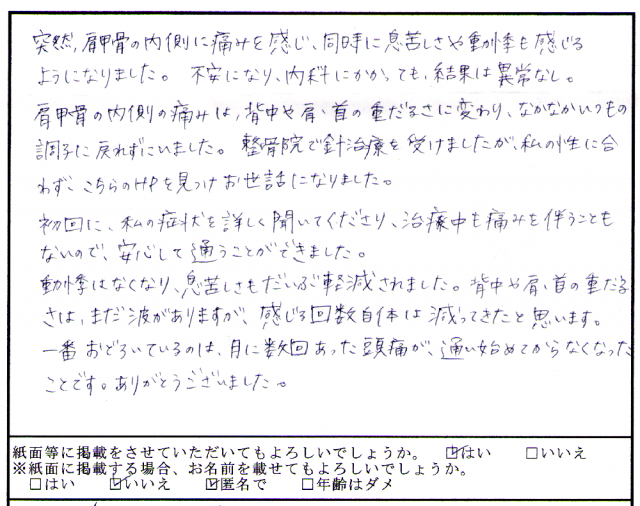 突然、肩甲骨の内側に痛みを感じ、同時に息苦しさや動悸も感じる
ようになりました。 不安になり、内科にかかっても、結果は異常なし。
肩甲骨の内側の痛みは、背中や肩、首の重だるさに変わり、なかなかいつもの
調子に戻れずにいました。 整骨院で針治療を受けましたが、私の性に合
わず、こちらのHPを見つけお世話になりました。
初回に、私の症状を詳しく聞いてくださり、治療中も痛みを伴うことも
ないので、安心して通うことができました。
動悸はなくなり、息苦しさもだいぶ軽減されました。背中や肩、首の重だる
さは、まだ波がありますが、感じる回数自体は減ってきたと思います。
一番おどろいているのは、月に数回あった頭痛が、通い始めてからなくなった
ことです。ありがとうございました。
紙面等に掲載をさせていただいてもよろしいでしょうか。 ☑はい □いいえ
※紙面に掲載する場合、お名前を載せてもよろしいでしょうか。
□はい ☑いいえ ☑匿名で □年齢はダメ